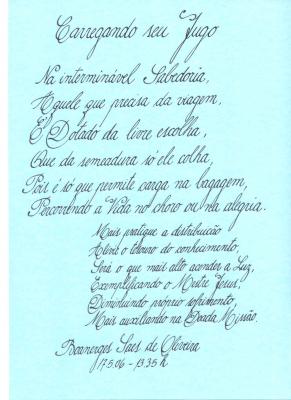 Carregando seu Jugo
Na interminável Sabedoria,
Aquele que precisa da viagem,
É Dotado da livre escolha,
Que da semeadura só ele colha,
Pois é só que permite carga na bagagem,
Percorrendo a Vida no choro ou na alegria.
Mais pratique a distribuição
Altere o tesouro do conhecimento,
Será o que mais alto acender a Luz,
Exemplificando o Mestre Jesus,
Diminuindo próprio sofrimento,
Mais auxiliando na Doada Missão.
Boanerges Saes de Oliveira
17.5.06 - 13.35 h